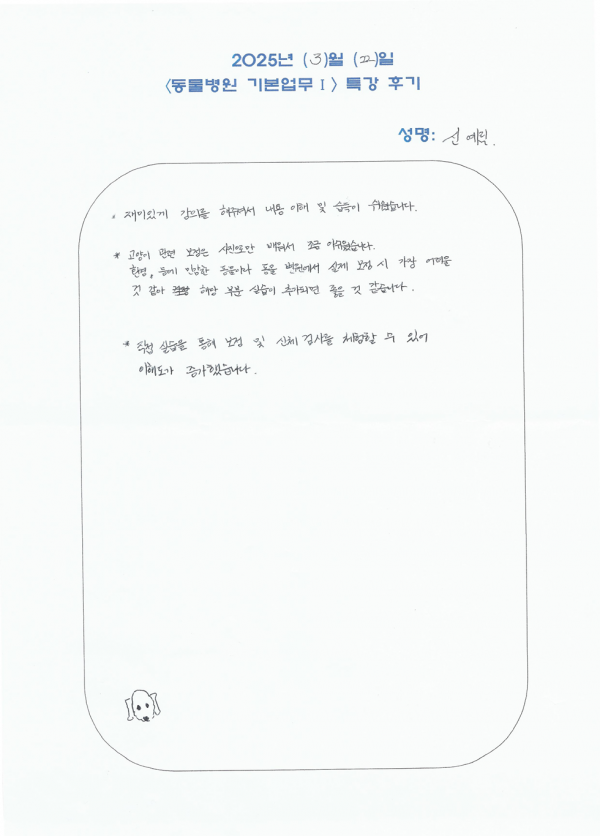 2025년 (3)월 (22)일
<동물병원 기본업무 I > 특강 후기
성명: 선예림.
* 재미있게 강의를 해주셔서 내용 이해 및 습득이 쉬웠습니다.
* 고양이 관련 보정은 사진으로만 배워서 조금 아쉬웠습니다.
환경, 등에 민감한 동물이라 동물 병원에서 실제 보정 시 가장 어려울
것 같아 해당 부분 실습이 추가되면 좋을 것 같습니다.
* 직접 실습을 통해 보정 및 신체 검사를 체험할 수 있어
이해도가 증가했습니다.